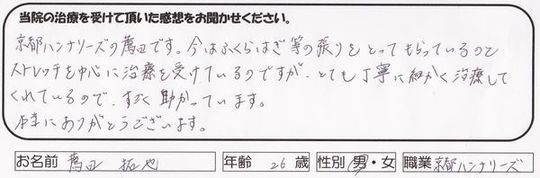 当院の治療を受けて頂いた感想をお聞かせください。
京都ハンナリーズの薦田です。今はふくらはぎ等の張りをとってもらっているのと
ストレッチを中心に治療を受けているのですが、とても丁寧に細かく治療して
くれているので、すごく助かっています。
本当にありがとうございます。
お名前 薦田 拓也 年齢 26 歳 性別 男・女 職業 京都ハンナリーズ